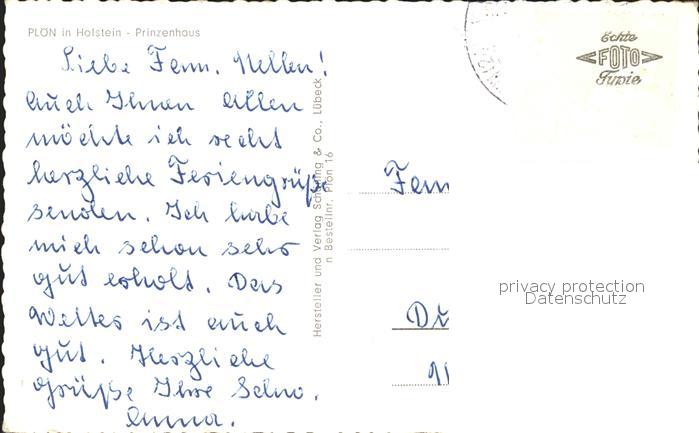 PLÖN in Holstein - Prinzenhaus
Liebe Fam. Nellen!
Auch Ihnen Allen
möchte ich recht
herzliche Feriengrüße
senden. Ich habe
mich schon sehr
gut erholt. Das
Wetter ist auch
gut. Herzliche
Grüße Ihre Schw.
Anna.
Hersteller und Verlag Schöning & Co., Lübeck
n Bestellnr. Plön 16
Echte
FOTO
Typie
Fam
Du
privacy protection
Datenschutz